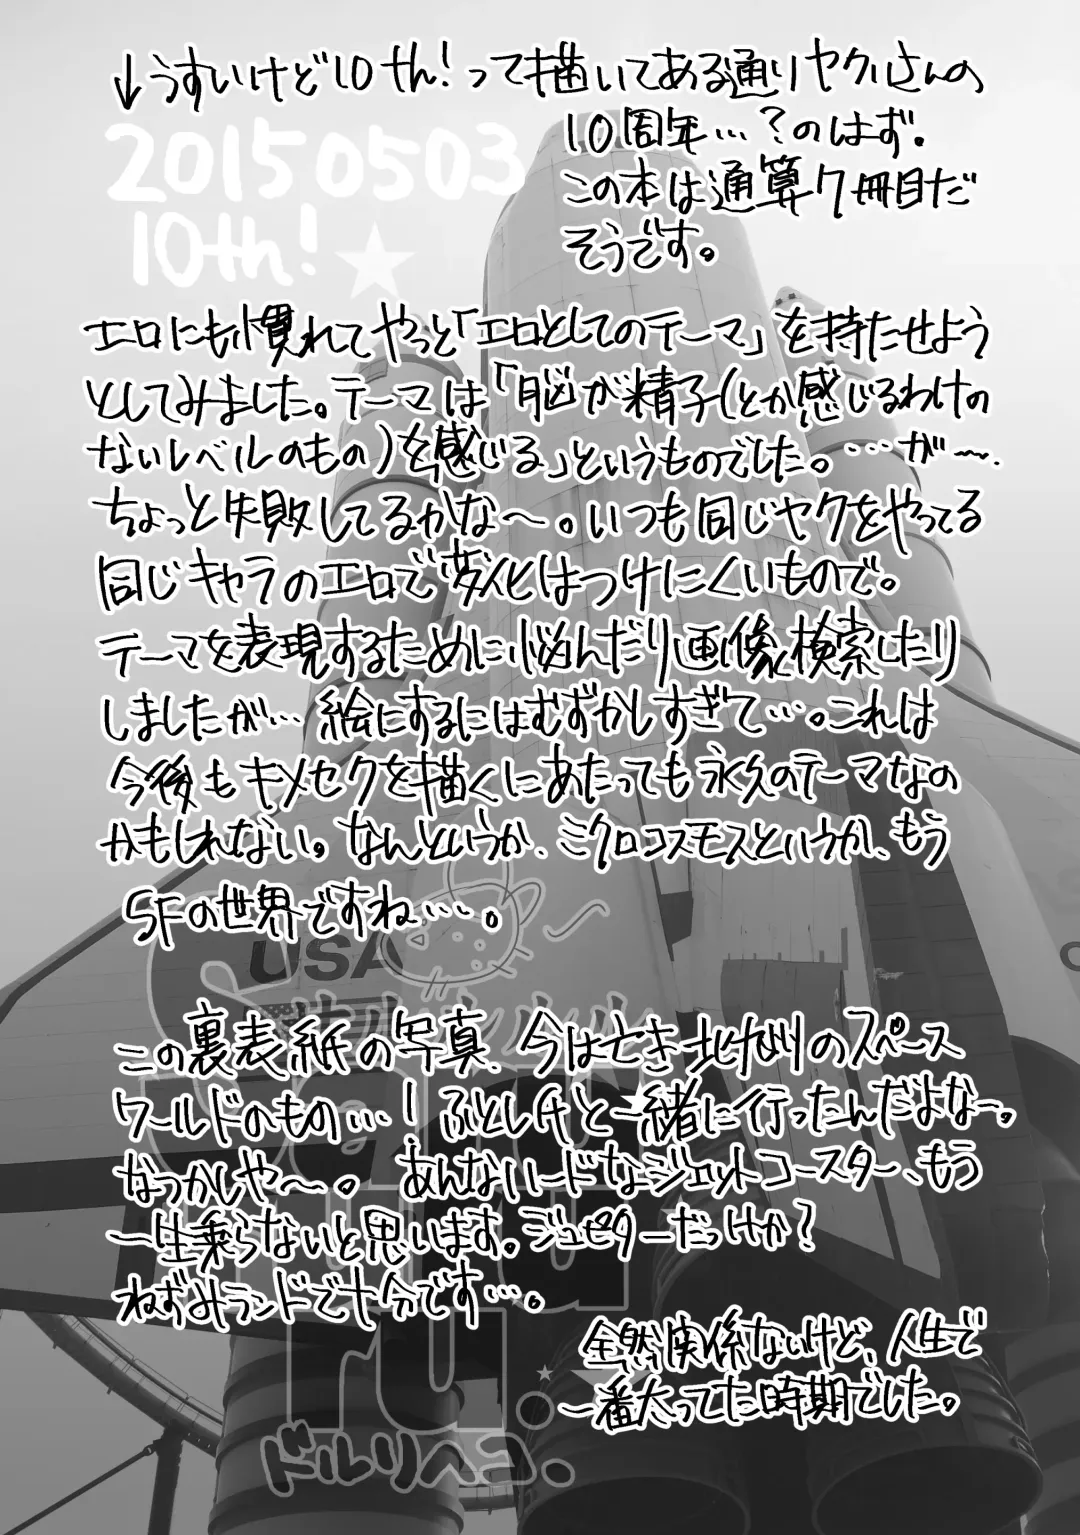 ↓うすいけど10th!って描いてある通りヤクルさんの
10周年…?のはず.
この本は通算7冊目だ
そうです。
20150503
10th!★
エロにも慣れてやっと「エロとしてのテーマ」を持たせよう
としてみました。テーマは「脳が精子(とか感じるわけの
ないレベルのもの)を感じる」というものでした。…が〜.
ちょっと失敗してるかな〜。いつも同じヤクをやってる
同じキャラのエロで変化はつけにくいもので。
テーマを表現するために悩んだり画像検索したり
しましたが…絵にするにはむずかしすぎて…。これは
今後もキメセクを描くにあたっても永久のテーマなの
かもしれない。なんというか、ミクロコスモスというか、もう
SFの世界ですね…。
USA
この裏表紙の写真、今は亡き北九州のスペース
ワールドのもの…!ふとし氏と一緒に行ったんだよな〜。
なつかしや〜。あんなハードなジェットコースター、もう
一生乗らないと思います。ジュピターだっけか?
ねずみランドで十分です…。
全然関係ないけど、人生で
一番太ってた時期でした。
ru.
ドルリヘコ.